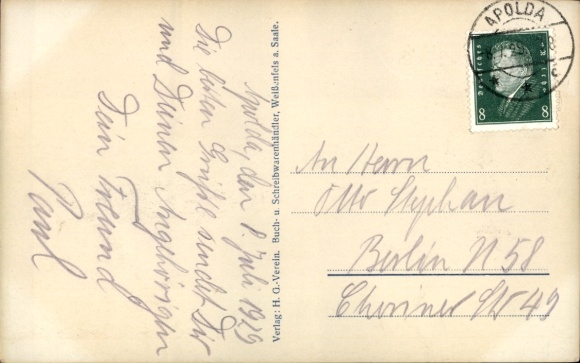 Apolda, den 8. Juli 1929
Die besten Grüße sendet Dir
und Deinen Angehörigen
Dein Freund
Paul
Verlag: H. G.-Verein. Buch- u. Schreibwarenhändler, Weißenfels a. Saale.
APOLDA
Deutsches Reich
8 8
An Herrn
Otto Stephan
Berlin N 58
Choriner Str 49